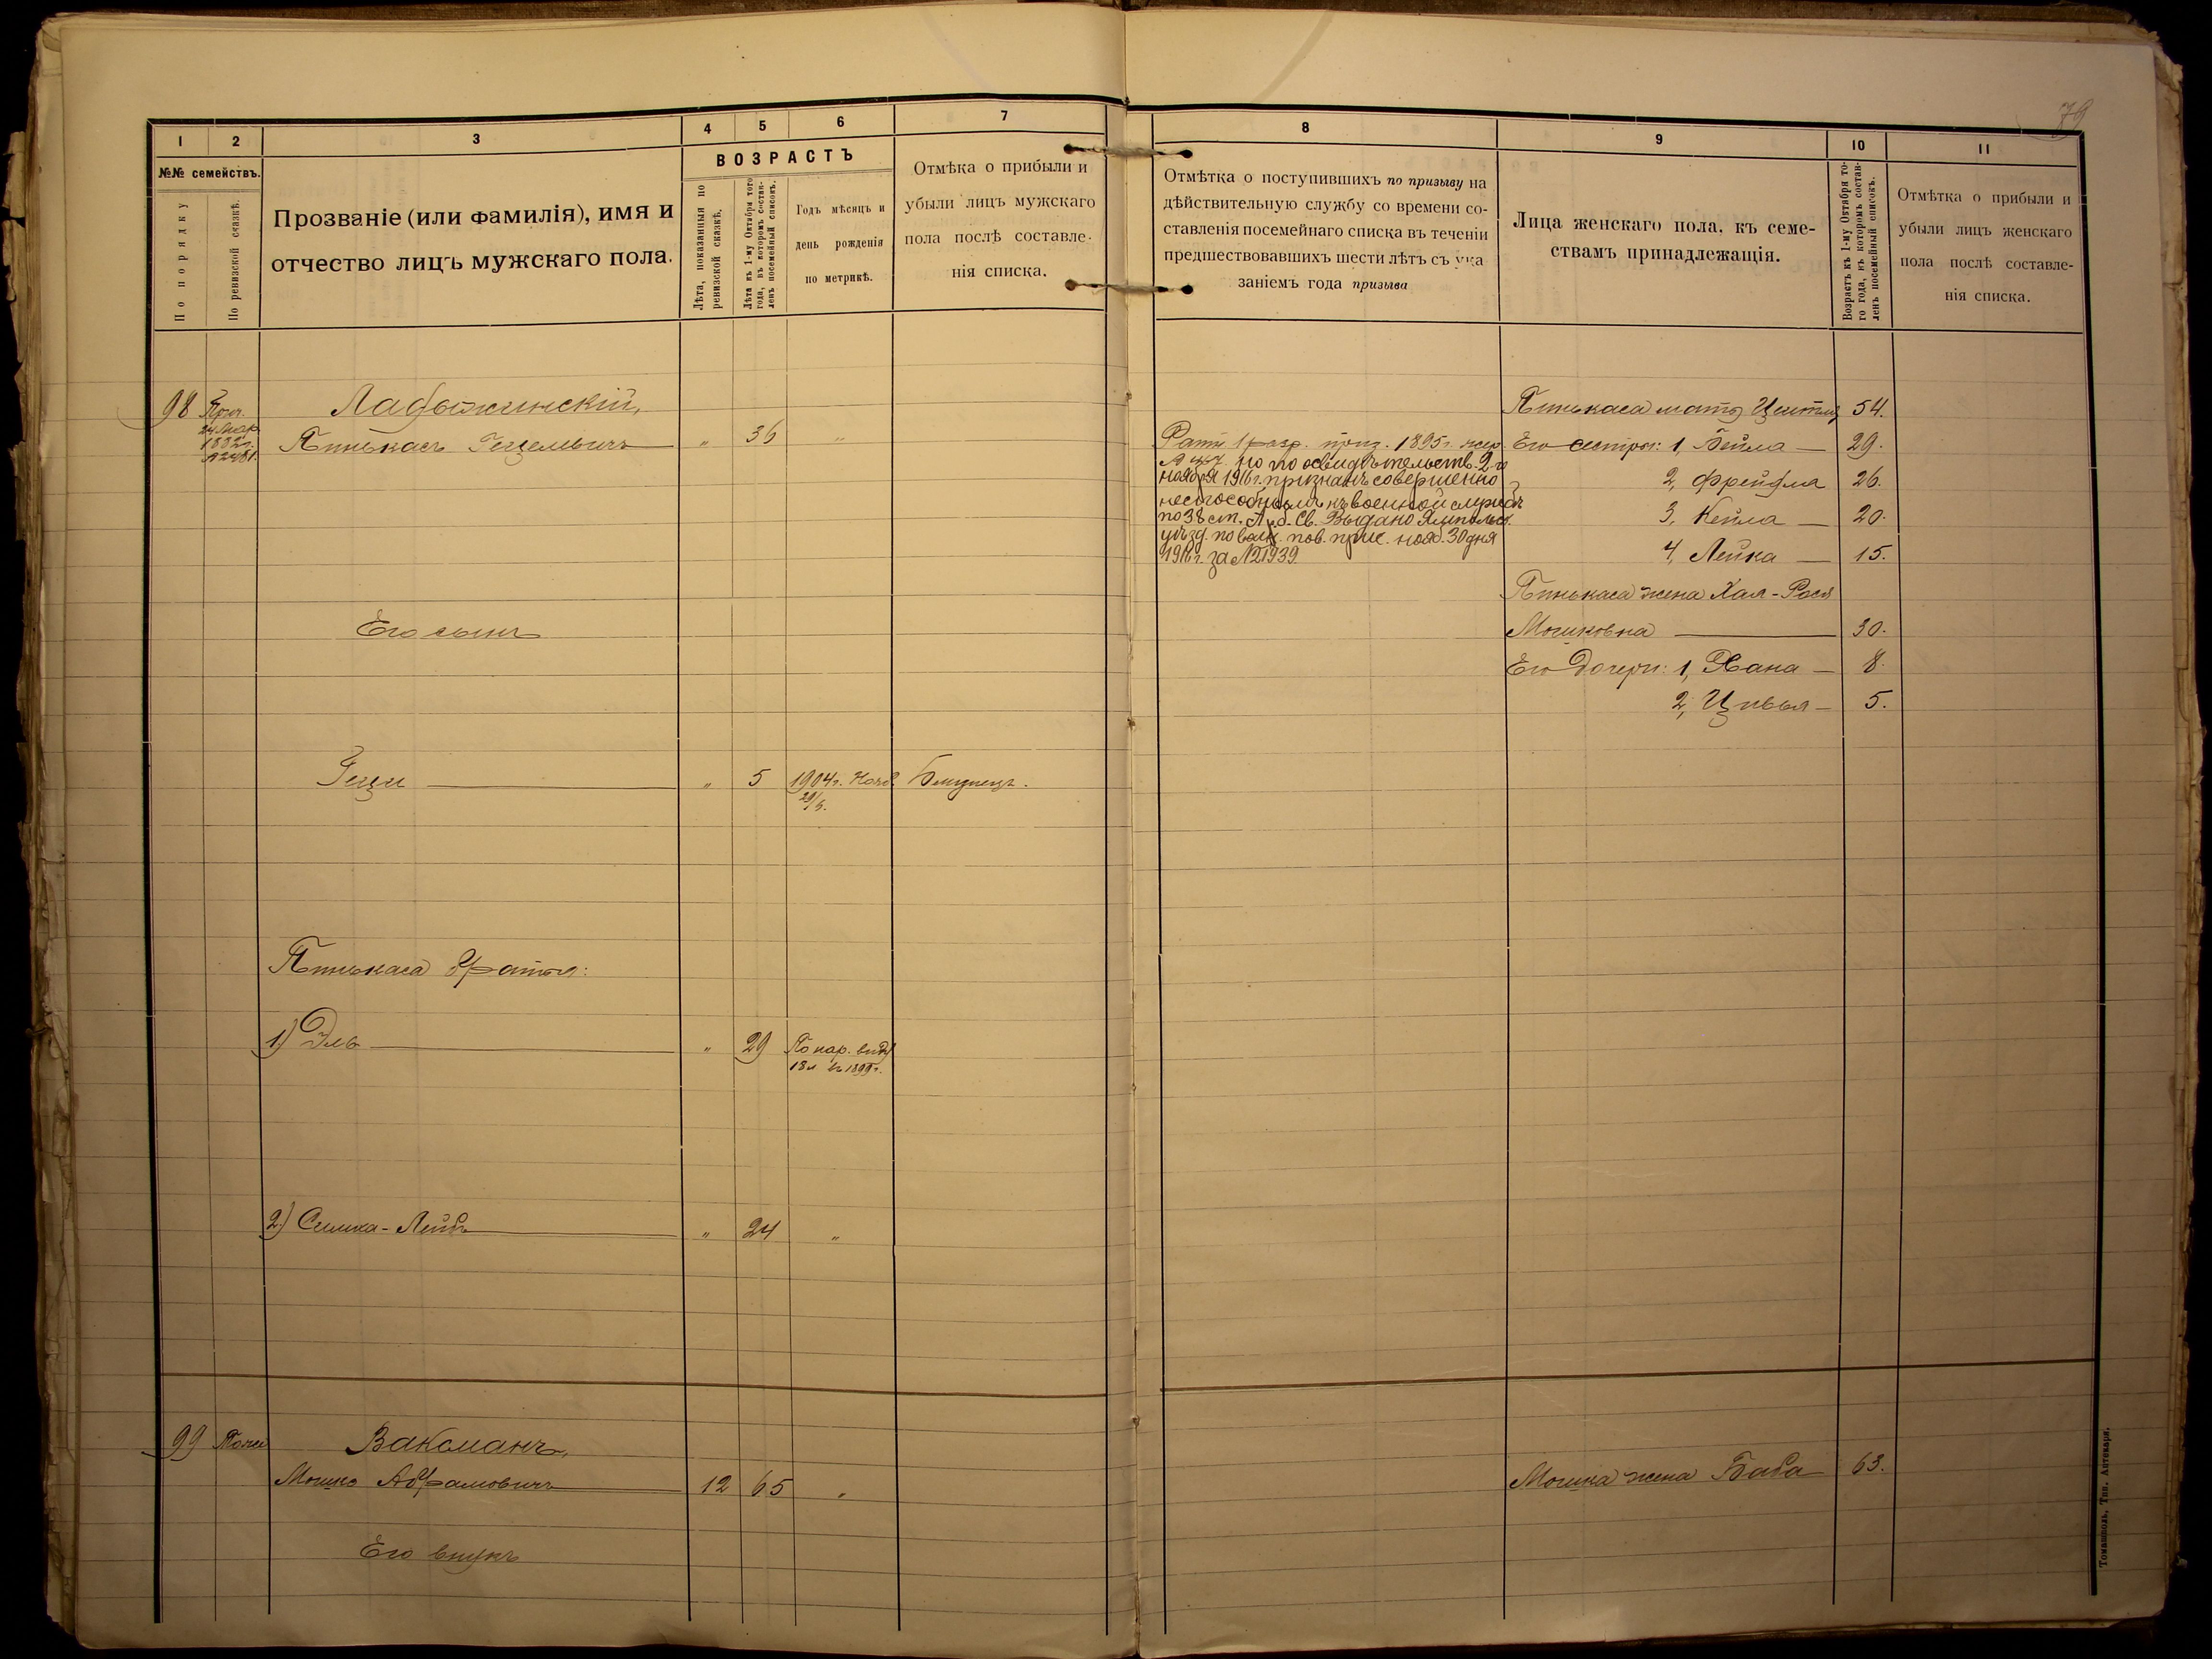 79
1 2 3 4 5 6 7
№№ семействъ.
По порядку
По ревизской сказкѣ.
Прозваніе (или фамилія), имя и
отчество лицъ мужскаго пола.
ВОЗРАСТЪ
Лѣта, показанныя по
ревизской сказкѣ.
Лѣта къ 1-му Октября того
года, въ которомъ состав-
ленъ посемейный списокъ.
Годъ мѣсяцъ и
день рожденія
по метрикѣ.
Отмѣка о прибыли и
убыли лицъ мужскаго
пола послѣ составле-
нія списка.
98 Прич.
24 Мар.
1882 г.
№2481.
Лабыжинскій,
Пинькасъ Гецельвичъ — „ 36 „
Его сынъ
Геци — „ 5 1904 г. Нояб.
29/5.
Пинькаса братья:
1) Эль — „ 29 По нар. виду
18 л. въ 1899 г.
2) Симка-Лейбъ — „ 24 „
99 Тоже
Вакоманъ,
Мошко Абрамовичъ — 12 65 „
Его внукъ
8 9 10 11
Отмѣтка о поступившихъ по призыву на
дѣйствительную службу со времени со-
ставленія посемейнаго списка въ теченіи
предшествовавшихъ шести лѣтъ съ ука
заніемъ года призыва
Лица женскаго пола, къ семе-
ствамъ принадлежащія.
Возрастъ къ 1-му Октября то-
го года, въ которомъ состав-
ленъ посемейный списокъ.
Отмѣтка о прибыли и
убыли лицъ женскаго
пола послѣ составле-
нія списка.
Ратн. 1 разр. приз. 1895 г. жер.
но по освидѣтельств. 2-го
ноября 1916 г. признанъ совершенно
неспособнымъ къ военной службѣ
по 38 ст. Выдано Ямпольск.
уѣзд. по воин. пов. прис. нояб. 30 дня
1916 г. за №21939.
Пинькаса мать 54.
Его сестры: 1, Бейла — 29.
2, Фрейдла 26.
3, Кейла — 20.
4, Лейка — 15.
Пинькаса жена Хая-Рося
Мошковна — 30.
Его дочери: 1, Хана — 8.
2, Цивья — 5.
Мошка жена Баба 63.
Томашполь, Тип. Аптекаря.